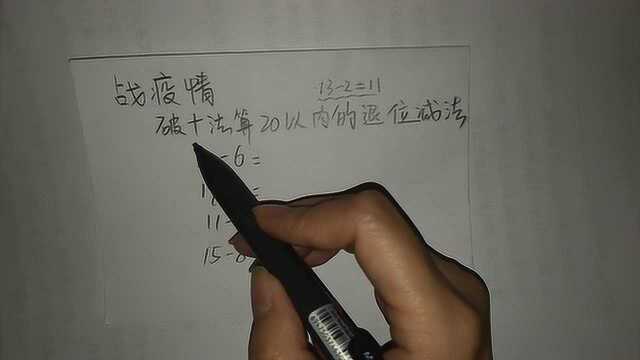 战疫情
13-2=11
破十法算20以内的退位减法
-6=
=
11-
15-